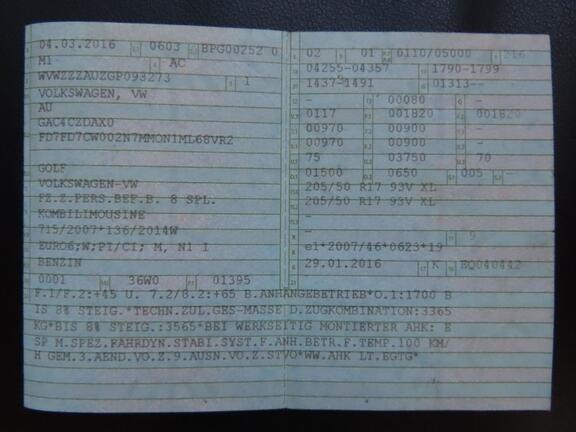 04.03.2016 0603 BPG00252 0
M1 AC
WVWZZZAUZGP093273 1
VOLKSWAGEN, VW
AU
GAC4CZDAX0
FD7FD7CW002N7MMON1ML68VR2
GOLF
VOLKSWAGEN-VW
FZ.Z.PERS.BEF.B. 8 SPL.
KOMBILIMOUSINE
715/2007*136/2014W
EURO6;W;PI/CI; M, N1 I
BENZIN
0001 36W0 01395
02 01 0110/05000 216
04255-04357 1790-1799
1437-1491 01313--
- 00080 -
0117 001820 001820
00970 00900 -
00970 00900 -
75 03750 70
01500 0650 005 -
205/50 R17 93V XL
205/50 R17 93V XL
-
- 9
e1*2007/46*0623*19
29.01.2016 K EQ040442
F.1/F.2:+45 U. 7.2/8.2:+65 B.ANHÄNGEBETRIEB*O.1:1700 B
IS 8% STEIG.*TECHN.ZUL.GES-MASSE D.ZUGKOMBINATION:3365
KG*BIS 8% STEIG.:3565*BEI WERKSEITIG MONTIERTER AHK: E
SP M.SPEZ.FAHRDYN.STABI.SYST.F.ANH.BETR.F.TEMP.100 KM/
H GEM.3.AEND.VO.Z.9.AUSN.VO.Z.STVO*WW.AHK LT.EGTG*